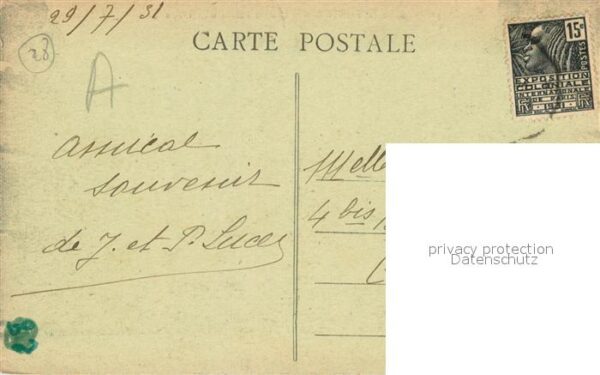 29/7/31
28
A
CARTE POSTALE
15c
POSTES
EXPOSITION
COLONIALE
INTERNATIONALE
DE PARIS
1931
RF
Amical
souvenir
de J. et P. Luce
Melle
4 bis
privacy protection
Datenschutz